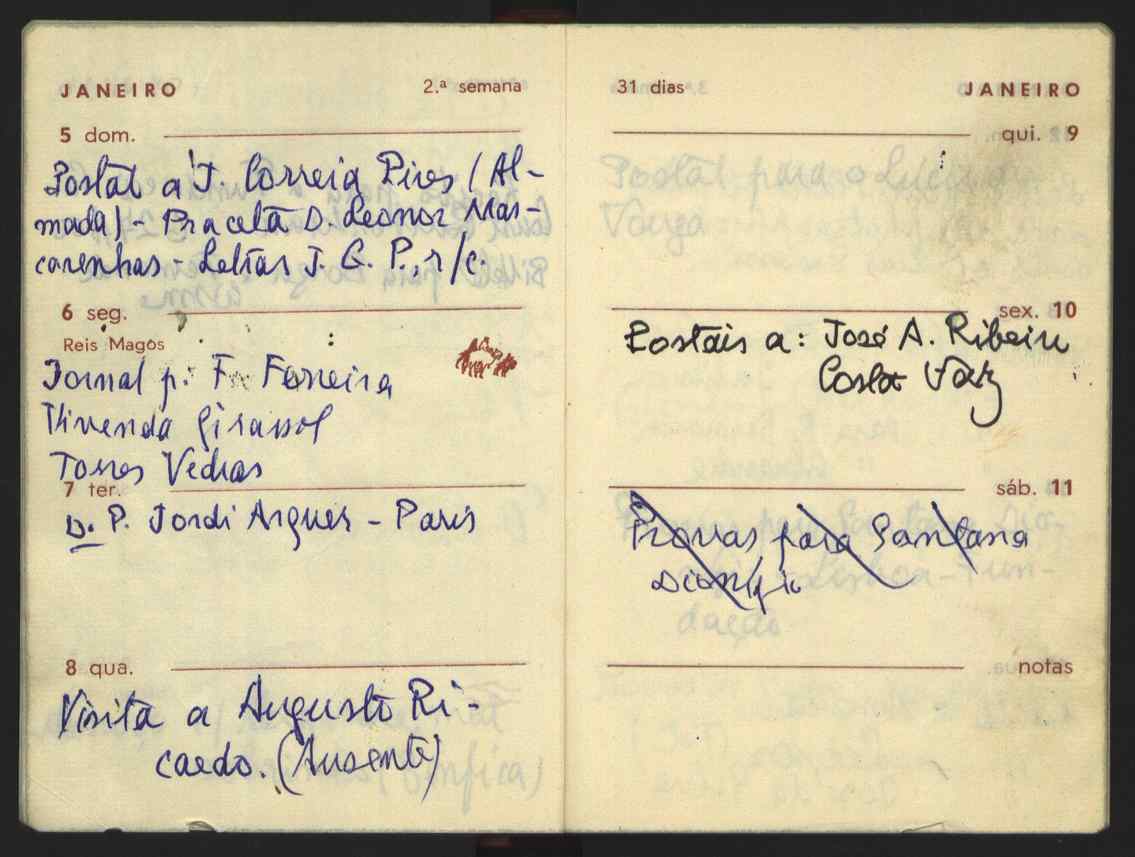 JANEIRO 2.ª semana
5 dom.
Postal a J. Correia Pires (Al-
mada) - Praceta D. Leonor Mas-
carenhas - Letras J. G. P., r/c.
6 seg.
Reis Magos
Jornal p. F. Ferreira
Vivenda Girassol
Torres Vedras
7 ter.
D. P. Jordi Arquer - Paris
8 qua.
Visita a Augusto Ri-
cardo. (Ausente)
31 dias JANEIRO
qui. 9
sex. 10
Postais a: José A. Ribeiro
Costa Vaz
sáb. 11
Provas para Santana
Dionísio
notas